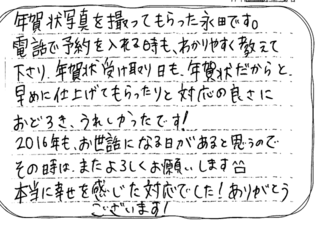 年賀状写真を撮ってもらった永田です。
電話で予約を入れる時も、わかりやすく教えて
下さり、年賀状受け取り日も、年賀状だからと、
早めに仕上げてもらったりと対応の良さに
おどろき、うれしかったです!
2016年も、お世話になる日があると思うので
その時は、またよろしくお願いします
本当に幸せを感じた対応でした!ありがとう
ございます!